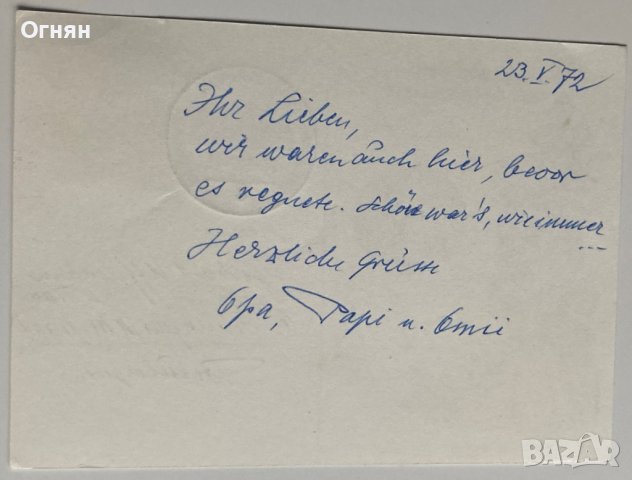 Огнян
23.V.72
Ihr Lieben,
wir waren auch hier, bevor
es regnete. Schön war's, wie immer
...
Herzliche Grüsse
Opa, Papi u. Omii
BAZAR